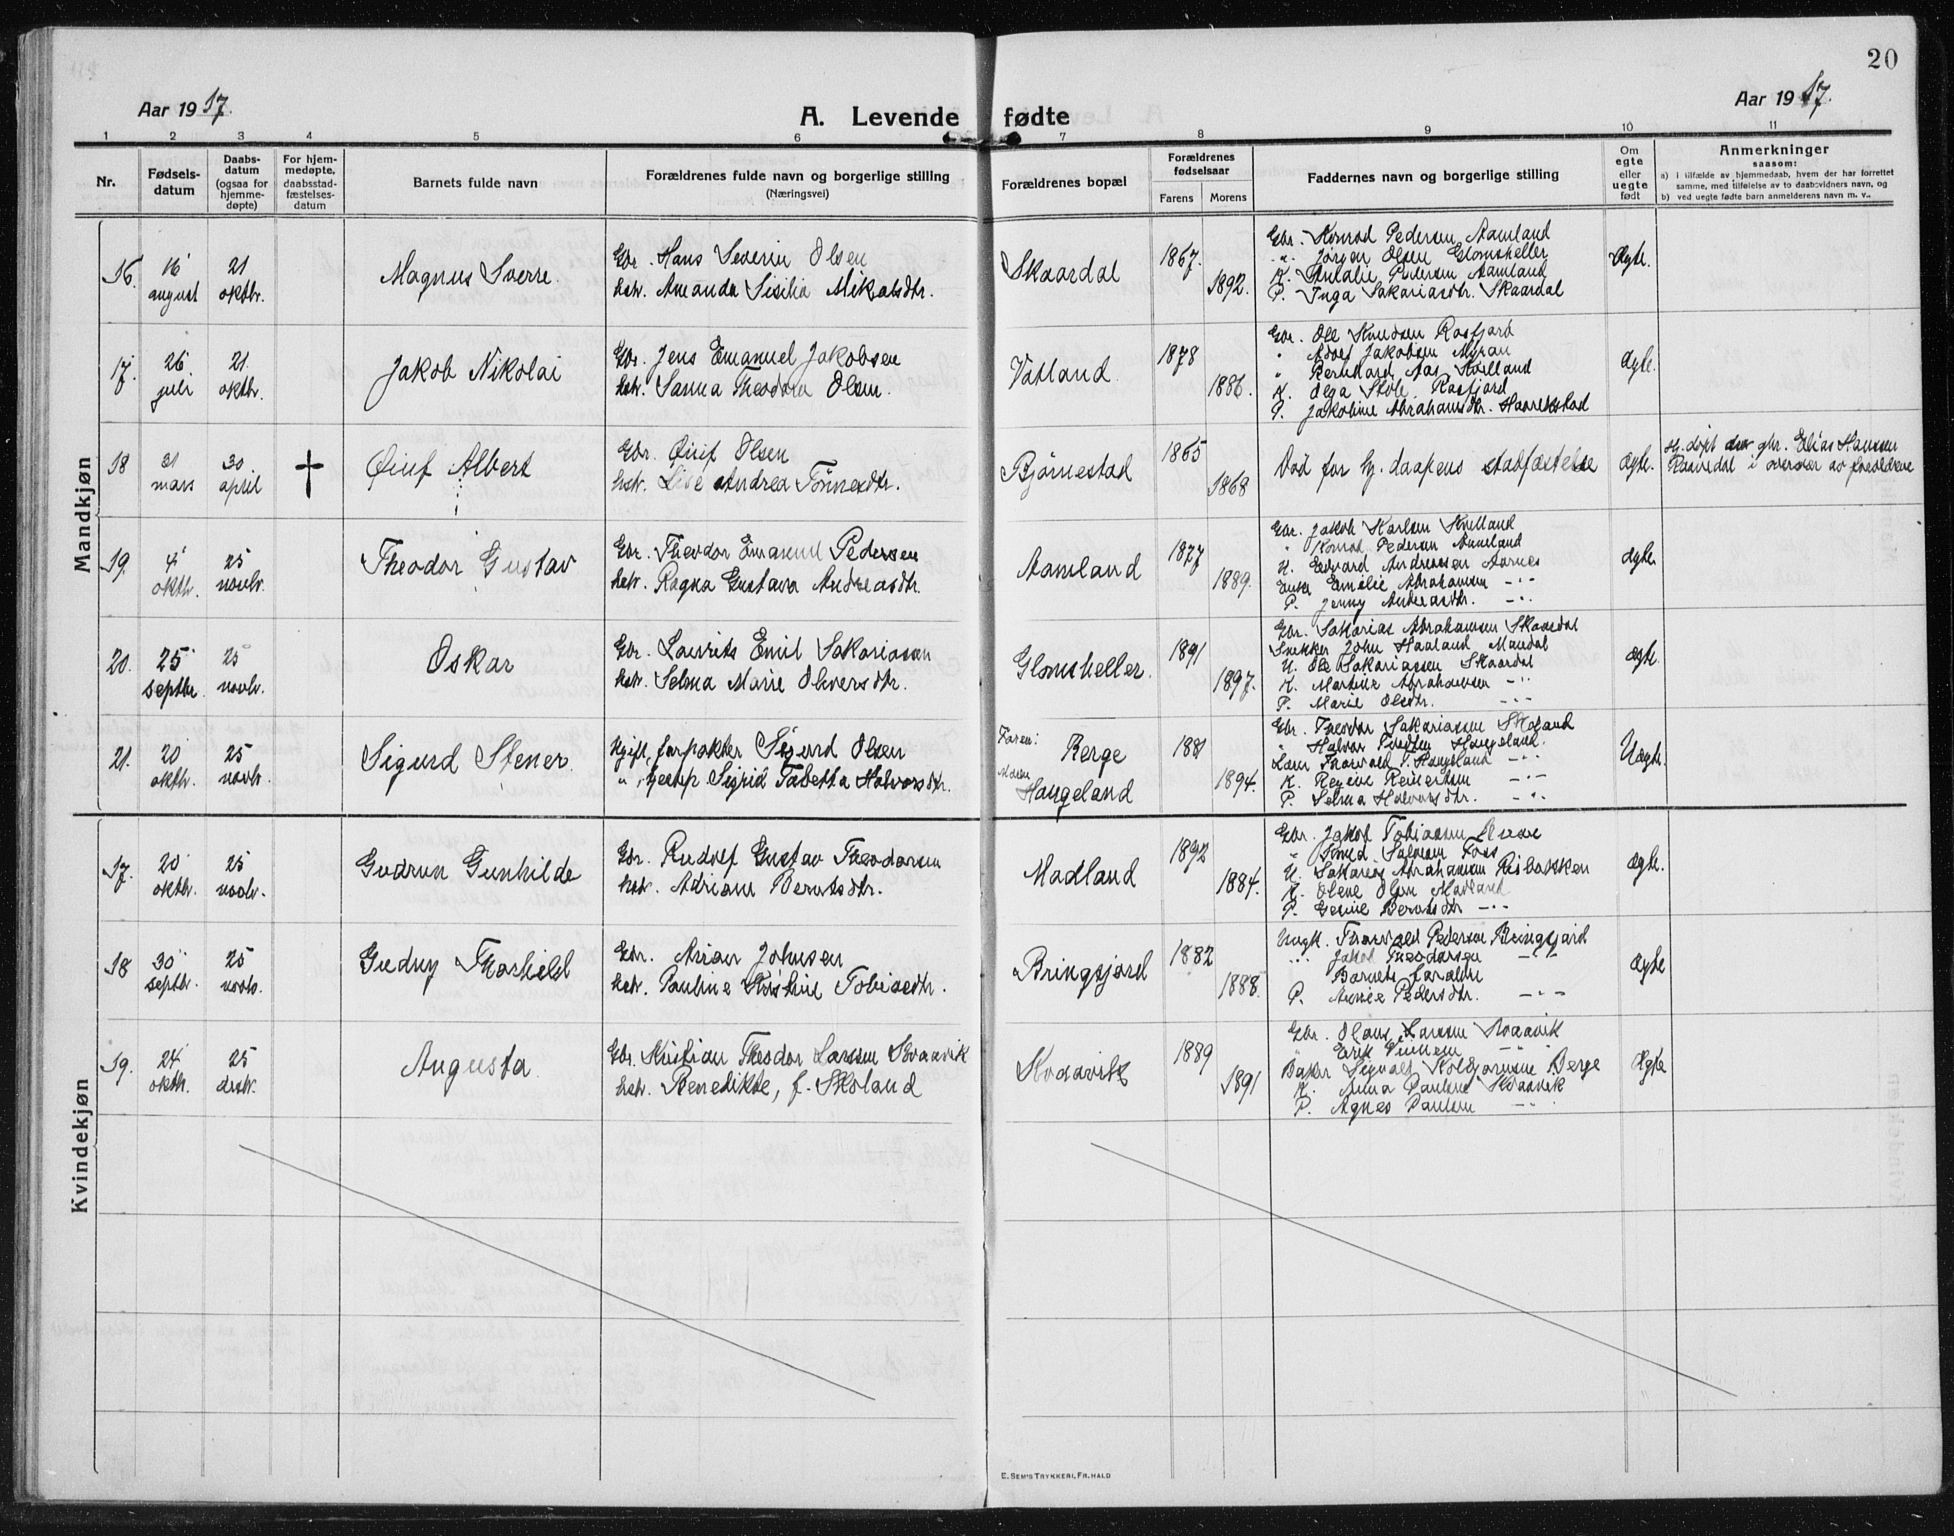 20
Aar 1917.
A. Levende fødte
Aar 1917.
1 2 3 4 5 6 7 8 9 10 11
Nr.
Fødsels-
datum
Daabs-
datum
(ogsaa for
hjemme-
døpte)
For hjem-
medøpte,
daabsstad-
fæstelses-
datum
Barnets fulde navn
Forældrenes fulde navn og borgerlige stilling
(Næringsvei)
Forældrenes bopæl
Forældrenes
fødselsaar
Farens Morens
Faddernes navn og borgerlige stilling
Om
egte
eller
uegte
født
Anmerkninger
saasom:
a) i tilfælde av hjemmedaab, hvem der har forrettet
samme, med tilføielse av to daabsvidners navn, og
b) ved uegte fødte barn anmelderens navn m. v..
Mandkjøn
16. 16 august 21 oktbr. Magnus Sverre.
Gbr. Hans Severin Olsen
hstr. Amanda Sisilia Mikalsdtr.
Skaardal 1867. 1892.
Gbr. Konrad Pedersen Aamland
" Jørgen Olsen Glomsheller
K. Amalie Pedersen Aamland
P. Inga Sakariasdtr. Skaardal
Ægte.
17. 26 juli 21. oktbr. Jakob Nikolai
Gbr. Jens Emanuel Jakobsen
hstr. Sanna Theodora Olsen.
Vatland. 1878 1886.
Gbr. Ole Knudsen Rosfjord
" Adolf Jakobsen Myran
" Bernhard Aas Kvilland
K. Olga Rosfjord
P. Jakobine Abrahamsdtr.
Ægte.
18 31 mars 30. april † Øiuf Albert
Gbr. Øiuf Olsen
hstr. Live Andrea Tønnesdtr.
Bjørnestad 1865 1868
Død før hj. daapens stadfæstelse
Ægte.
Hj. døpt av gbr. Elias Hansen
Raavedal i overvær av forældrene
19. 4 oktbr. 25 novbr. Theodor Gustav
Gbr. Theodor Emanuel Pedersen
hstr. Ragna Gustava Andreasdtr.
Aamland 1877 1889.
Gbr. Jakob Karlsen Kvilland
" Konrad Pedersen Aamland
U. Edvard Andreassen Aarnes
Enke Emilie Abrahamsen -"-
P. Jenny Andreasdtr. -"-
Ægte
20. 25 septbr. 25 novbr. Oskar
Gbr. Laurits Emil Sakariasen
hstr. Selma Marie Olversdtr.
Glomsheller. 1891 1897.
Gbr. Sakarias Abrahamsen Skaardal
Snekker John Haaland Mandal
U. Ole Sakariassen Skaardal
K. Martine Abrahamsen -"-
P. Marie Olsdtr. -"-
Ægte.
21. 20 oktbr. 25 novbr. Sigurd Stener.
Ugift, forpakter Sigurd Olsen
" , tjenep Sigrid Tabetta Halvorsdtr.
Faren: Berge
Moren Haugeland
1881 1894.
Gbr. Theodor Sakariassen Skoland
" Halvor Haugeland.
Thorvald T. Haugeland -"-
K. Regine Reinertsen -"-
P. Selma Halvorsdtr. -"-
Uægte.
Kvindekjøn
17. 20 oktbr. 25 novbr. Gudrun Gunhilde
Gbr. Rudolf Gustav Theodorsen
hstr. Adriane Berntsdtr.
Madland 1892 1884.
Gbr. Jakob Tobiassen
" Knud Salvesen Foss
U. Sakarias Abrahamsen Risbakken
K. Olene Olsen Madland
P. Gesine Berntsdtr -"-
Ægte.
18 30 septbr. 25 novbr. Gudny Thorhild
Gbr. Johnsen
hstr. Pauline Kristine Tobiasdtr.
Bringsjord 1882 1888.
Ungk. Thorvald Pedersen Bringsjord
" Jakob Theodorsen -"-
Barnets forældre
P. Pedersdtr. -"-
Ægte
19. 24 oktbr. 25 desbr. Augusta.
Gbr. Kristian Theodor Larssen Kvaavik
hstr. Benedikte, f. Skoland
Kvaavik 1889 1891
Gbr. Olaus Larssen Kvaavik
-"-
Baker Berge
K. Anna Paulsen Kvaavik
P. Agnes Paulsen -"-
Ægte
E. Sem's Trykkeri, Fr.hald